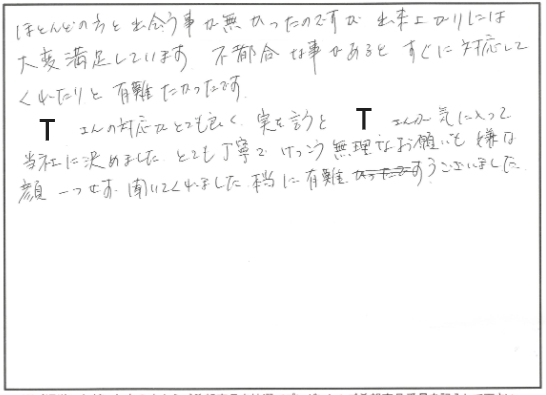 ほとんどの方と出会う事が無かったのですが 出来上がりには
大変満足しています 不都合な事があると すぐに対応して
くれたりと 有難たかったです
Tさんの対応がとても良く、実を言うと Tさんが気に入って
当社に決めました とても丁寧で けっこう無理なお願いも嫌な
顔一つせず 聞いてくれました 本当に有難うございました